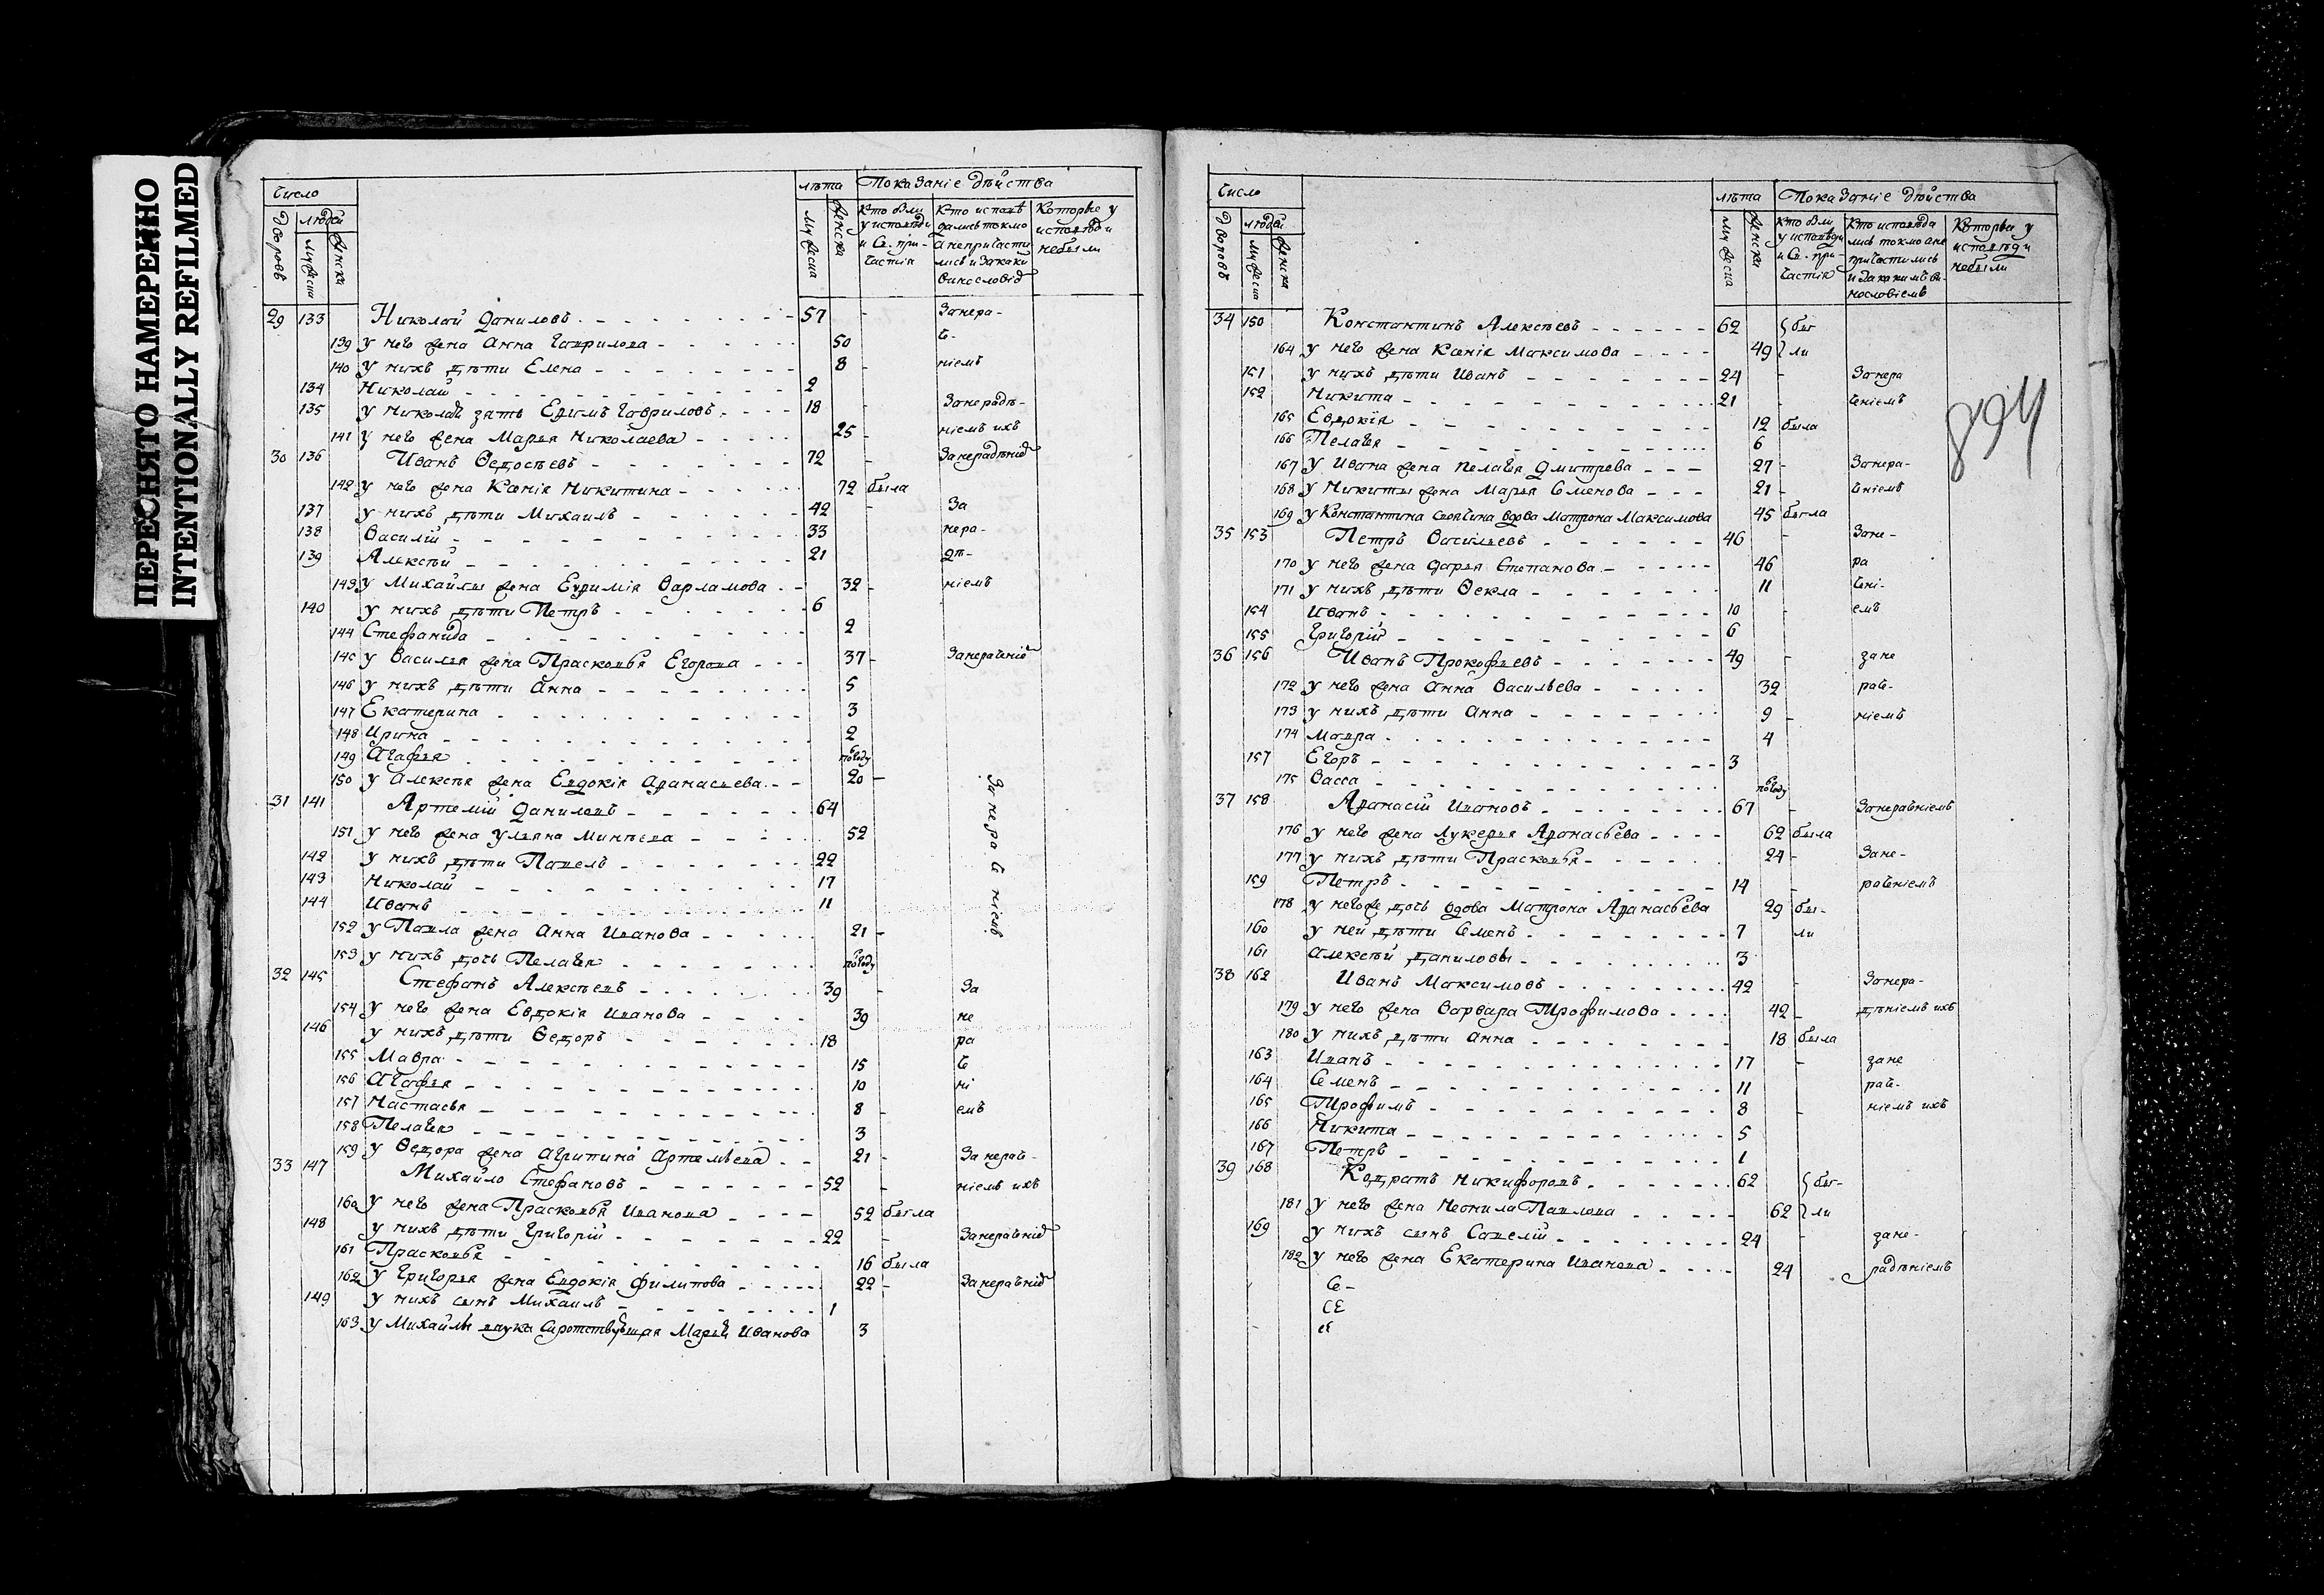 ПЕРЕСНЯТО НАМЕРЕННО
INTENTIONALLY REFILMED
Число
лѣта Показаніе дѣйства
Дворовъ людей мужеска женска
мужеска женска
Кто были у исповѣди и Св. причастія
Кто исповѣдались токмо а непричастились и за каким винословіем
Которые у исповѣди небыли
29 133 Николай Даниловъ 57 - Занера-
139 у него жена Анна Гаврилова 50 ч-
140 у нихъ дѣти Елена 8 - ніемъ
134 Николай 2
135 у Николая зять Ефимъ Гавриловъ 18 - Занерадѣ-
141 у него жена Марья Николаева 25 - ніемъ ихъ
30 136 Иванъ Ѳедосѣевъ 72 - Занерадѣніе
142 у него жена Ксенія Никитина 72 была
137 у нихъ дѣти Михаилъ 42 - За
138 Василій 33 нера-
139 Алексѣй 21 дѣ-
143 у Михайлы жена Ефимія Варламова 32 - ніемъ
140 у нихъ дѣти Петръ 6
144 Стефанида 2
145 у Василья жена Прасковья Егорова 37 - Занерачніе
146 у нихъ дѣти Анна 5
147 Екатерина 3
148 Ирина 2
149 Агафья погоду
150 у Алексѣя жена Евдокія Афанасьева 20 -
31 141 Артемій Даниловъ 64
Занерачніемъ
151 у него жена Ульяна Минѣева 52
142 у нихъ дѣти Павелъ 22
143 Николай 17
144 Иванъ 11
152 у Павла жена Анна Иванова 21 -
153 у нихъ дочь Пелагея погоду
32 145 Стефанъ Алексѣевъ 39 - За
154 у него жена Евдокія Иванова 39 не
146 у нихъ дѣти Ѳедоръ 18 ра
155 Мавра 15 ч
156 Агафья 10 ні
157 Настасья 8 - емъ
158 Пелагея 3
159 у Ѳедора жена Агрипина Артемьева 21 - Занерач-
33 147 Михайло Стефановъ 52 - ніемъ ихъ
160 у него жена Прасковья Иванова 52 была
148 у нихъ дѣти Григорій 22 - Занерачніе
161 Прасковья 16 была
162 у Григорья жена Евдокія Филипова 22 - Занерачніе
149 у нихъ сынъ Михаилъ 1
163 у Михайлы внука Сиротствующая Марья Иванова 3
Число
лѣта Показаніе дѣйства
Дворовъ людей мужеска женска
мужеска женска
Кто были у исповѣди и Св. причастія
Кто исповѣдались токмо а не причастились и за какимъ винословіемъ
Которые у исповѣди небыли
894
34 150 Константинъ Алексѣевъ 62 бы
164 у него жена Ксенія Максимова 49 ли
151 у нихъ дѣти Иванъ 24 - Занера
152 Никита 21 - чніемъ
165 Евдокія 12 была
166 Пелагея 6
167 у Ивана жена Пелагея Дмитрева 27 - Занера-
168 у Никиты жена Марья Семенова 21 - чніемъ
169 у Константина своячина вдова Матрона Максимова 45 была
35 153 Петръ Васильевъ 46 - Зане-
170 у него жена Дарья Степанова 46 ра
171 у нихъ дѣти Ѳекла 11 - чні-
154 Иванъ 10 - емъ
155 Григорій 6
36 156 Иванъ Прокофьевъ 49 - зане
172 у него жена Анна Васильева 32 рач-
173 у нихъ дѣти Анна 9 - ніемъ
174 Мавра 4
157 Егоръ 3
175 Васса погоду
37 158 Афанасій Ивановъ 67 - Занерачніемъ
176 у него жена Лукерья Афонасьева 62 была
177 у нихъ дѣти Прасковья 24 - Зане-
159 Петръ 14 - рачніемъ
178 у негоже дочь вдова Матрона Афанасьева 29 бы-
160 у ней дѣти Семенъ 7 ли
161 Алексѣй Даниловы 3
38 162 Иванъ Максимовъ 42 - Занера-
179 у него жена Варвара Трофимова 42 - дѣніемъ ихъ
180 у нихъ дѣти Анна 18 была
163 Иванъ 17 - зане
164 Семенъ 11 рач-
165 Трофимъ 8 - ніемъ ихъ
166 Никита 5
167 Петръ 1
39 168 Кодратъ Никифоровъ 62 бы-
181 у него жена Неонила Павлова 62 ли
169 у нихъ сынъ Савелій 24 - зане-
182 у него жена Екатерина Иванова 24 радѣніемъ